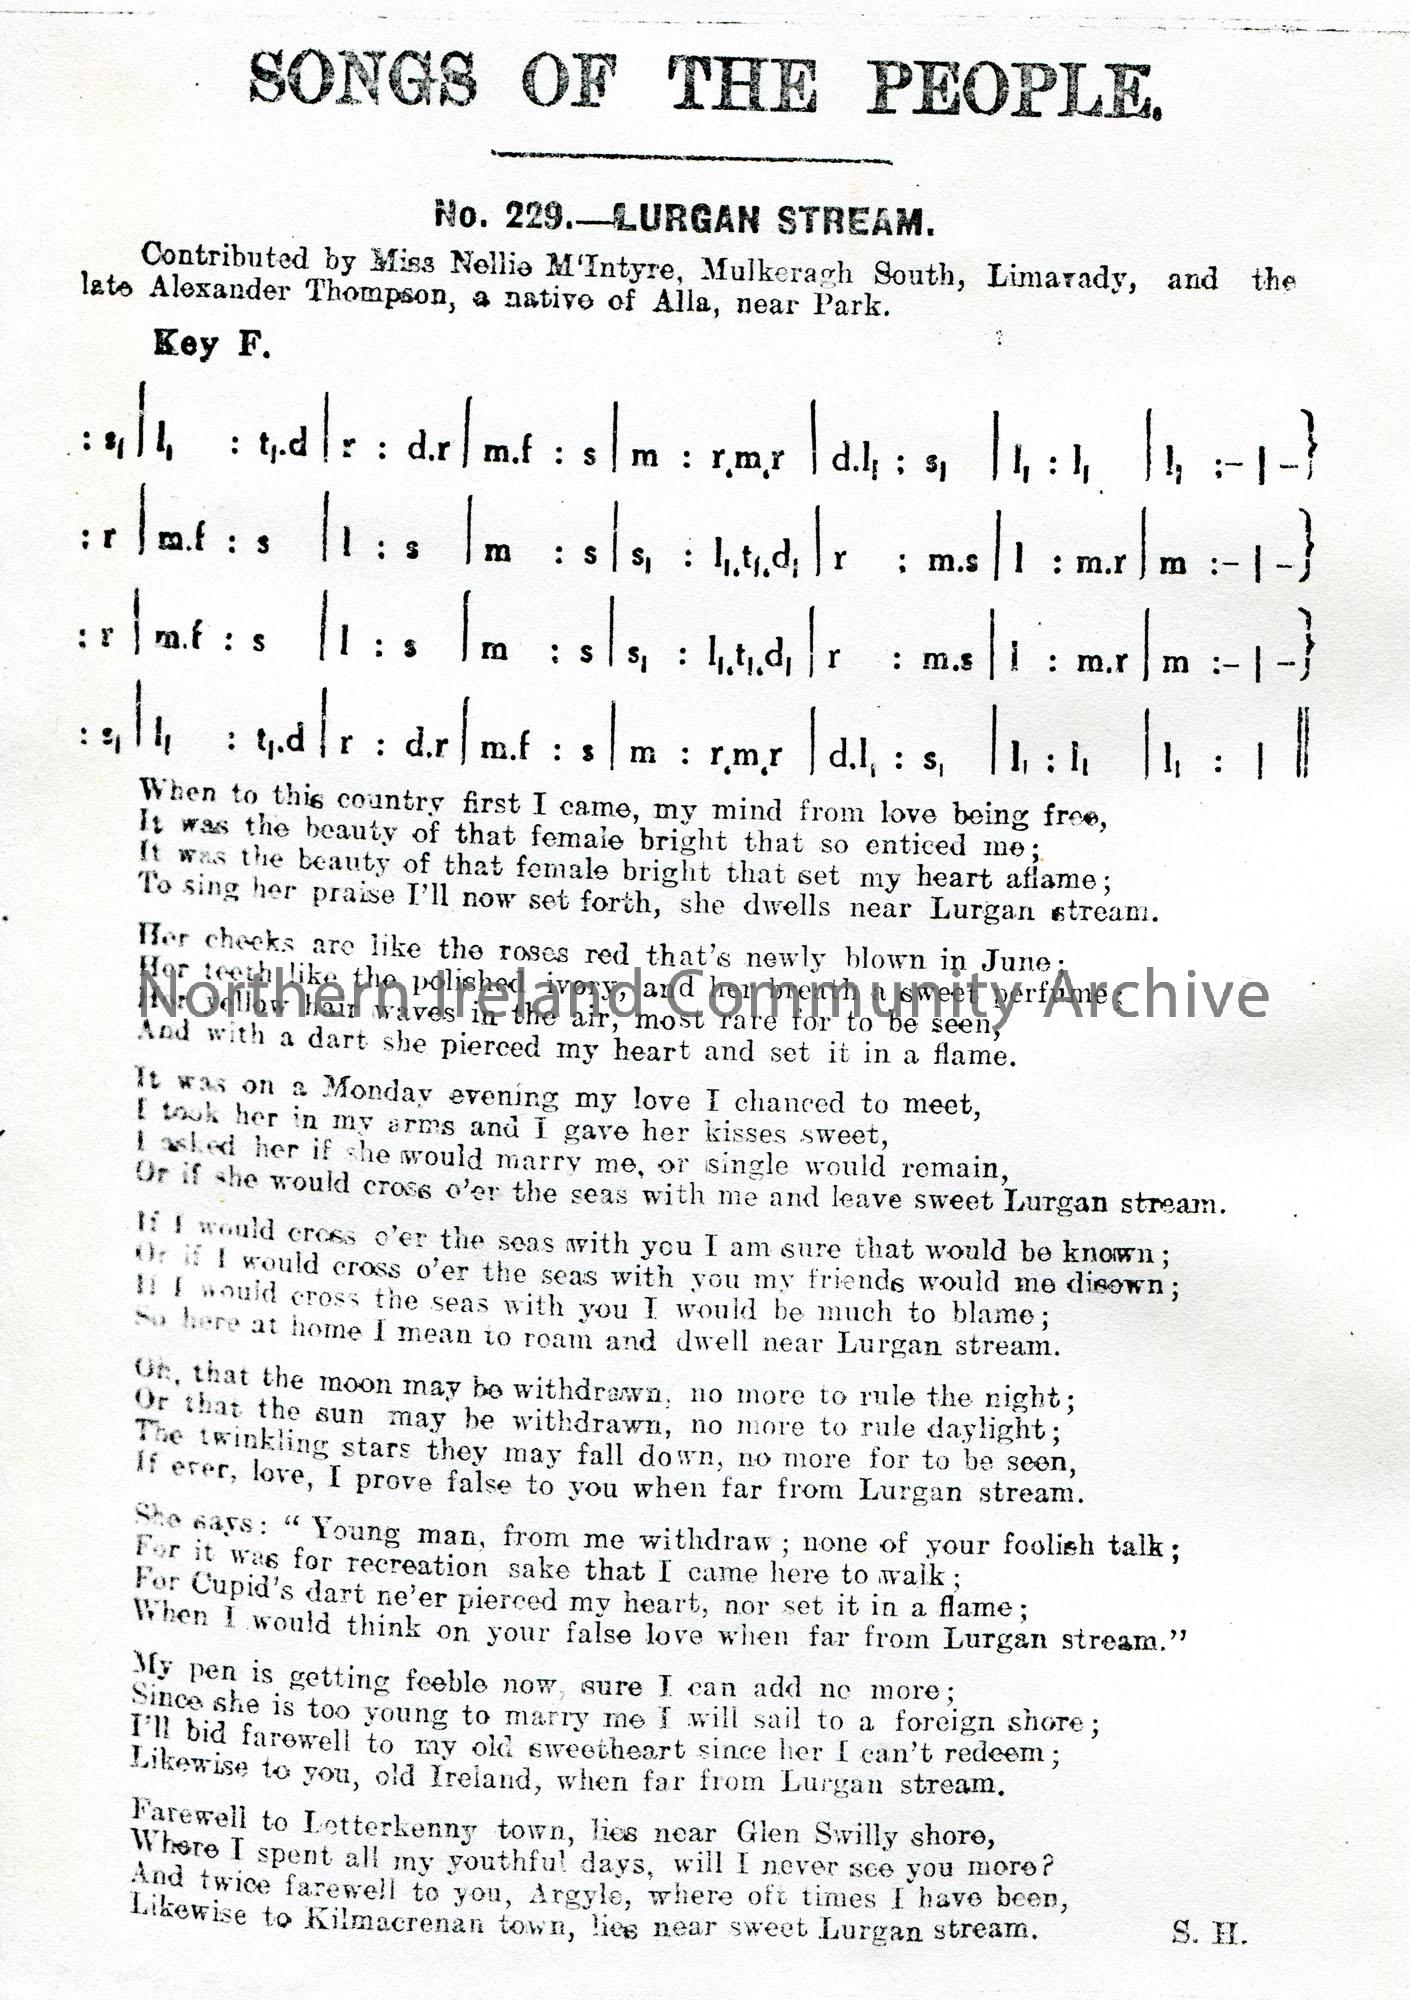 SONGS OF THE PEOPLE.
No. 229.—LURGAN STREAM.
Contributed by Miss Nellie M'Intyre, Mulkeragh South, Limavady, and the
late Alexander Thompson, a native of Alla, near Park.
Key F.
: s₁ | l₁ : t₁.d | r : d.r | m.f : s | m : r,m,r | d.l₁ : s₁ | l₁ : l₁ | l₁ :– | – }
: r | m.f : s | l : s | m : s | s₁ : l₁,t₁,d₁ | r : m.s | l : m.r | m :– | – }
: r | m.f : s | l : s | m : s | s₁ : l₁,t₁,d₁ | r : m.s | l : m.r | m :– | – }
: s₁ | l₁ : t₁.d | r : d.r | m.f : s | m : r,m,r | d.l₁ : s₁ | l₁ : l₁ | l₁ : | ||
When to this country first I came, my mind from love being free,
It was the beauty of that female bright that so enticed me;
It was the beauty of that female bright that set my heart aflame;
To sing her praise I'll now set forth, she dwells near Lurgan stream.
Her cheeks are like the roses red that's newly blown in June;
Her teeth like the polished ivory, and her breath a sweet perfume;
Her yellow hair waves in the air, most rare for to be seen,
And with a dart she pierced my heart and set it in a flame.
Northern Ireland Community Archive
It was on a Monday evening my love I chanced to meet,
I took her in my arms and I gave her kisses sweet,
I asked her if she would marry me, or single would remain,
Or if she would cross o'er the seas with me and leave sweet Lurgan stream.
If I would cross o'er the seas with you I am sure that would be known;
Or if I would cross o'er the seas with you my friends would me disown;
If I would cross the seas with you I would be much to blame;
So here at home I mean to roam and dwell near Lurgan stream.
Oh, that the moon may be withdrawn, no more to rule the night;
Or that the sun may be withdrawn, no more to rule daylight;
The twinkling stars they may fall down, no more for to be seen,
If ever, love, I prove false to you when far from Lurgan stream.
She says: "Young man, from me withdraw; none of your foolish talk;
For it was for recreation sake that I came here to walk;
For Cupid's dart ne'er pierced my heart, nor set it in a flame;
When I would think on your false love when far from Lurgan stream."
My pen is getting feeble now, sure I can add no more;
Since she is too young to marry me I will sail to a foreign shore;
I'll bid farewell to my old sweetheart since her I can't redeem;
Likewise to you, old Ireland, when far from Lurgan stream.
Farewell to Letterkenny town, lies near Glen Swilly shore,
Where I spent all my youthful days, will I never see you more?
And twice farewell to you, Argyle, where oft times I have been,
Likewise to Kilmacrenan town, lies near sweet Lurgan stream.
S. H.